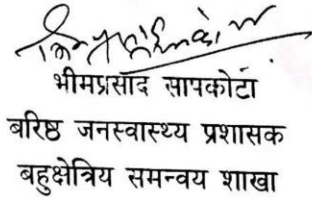 भीमप्रसाद सापकोटा
बरिष्ठ जनस्वास्थ्य प्रशासक
बहुक्षेत्रिय समन्वय शाखा